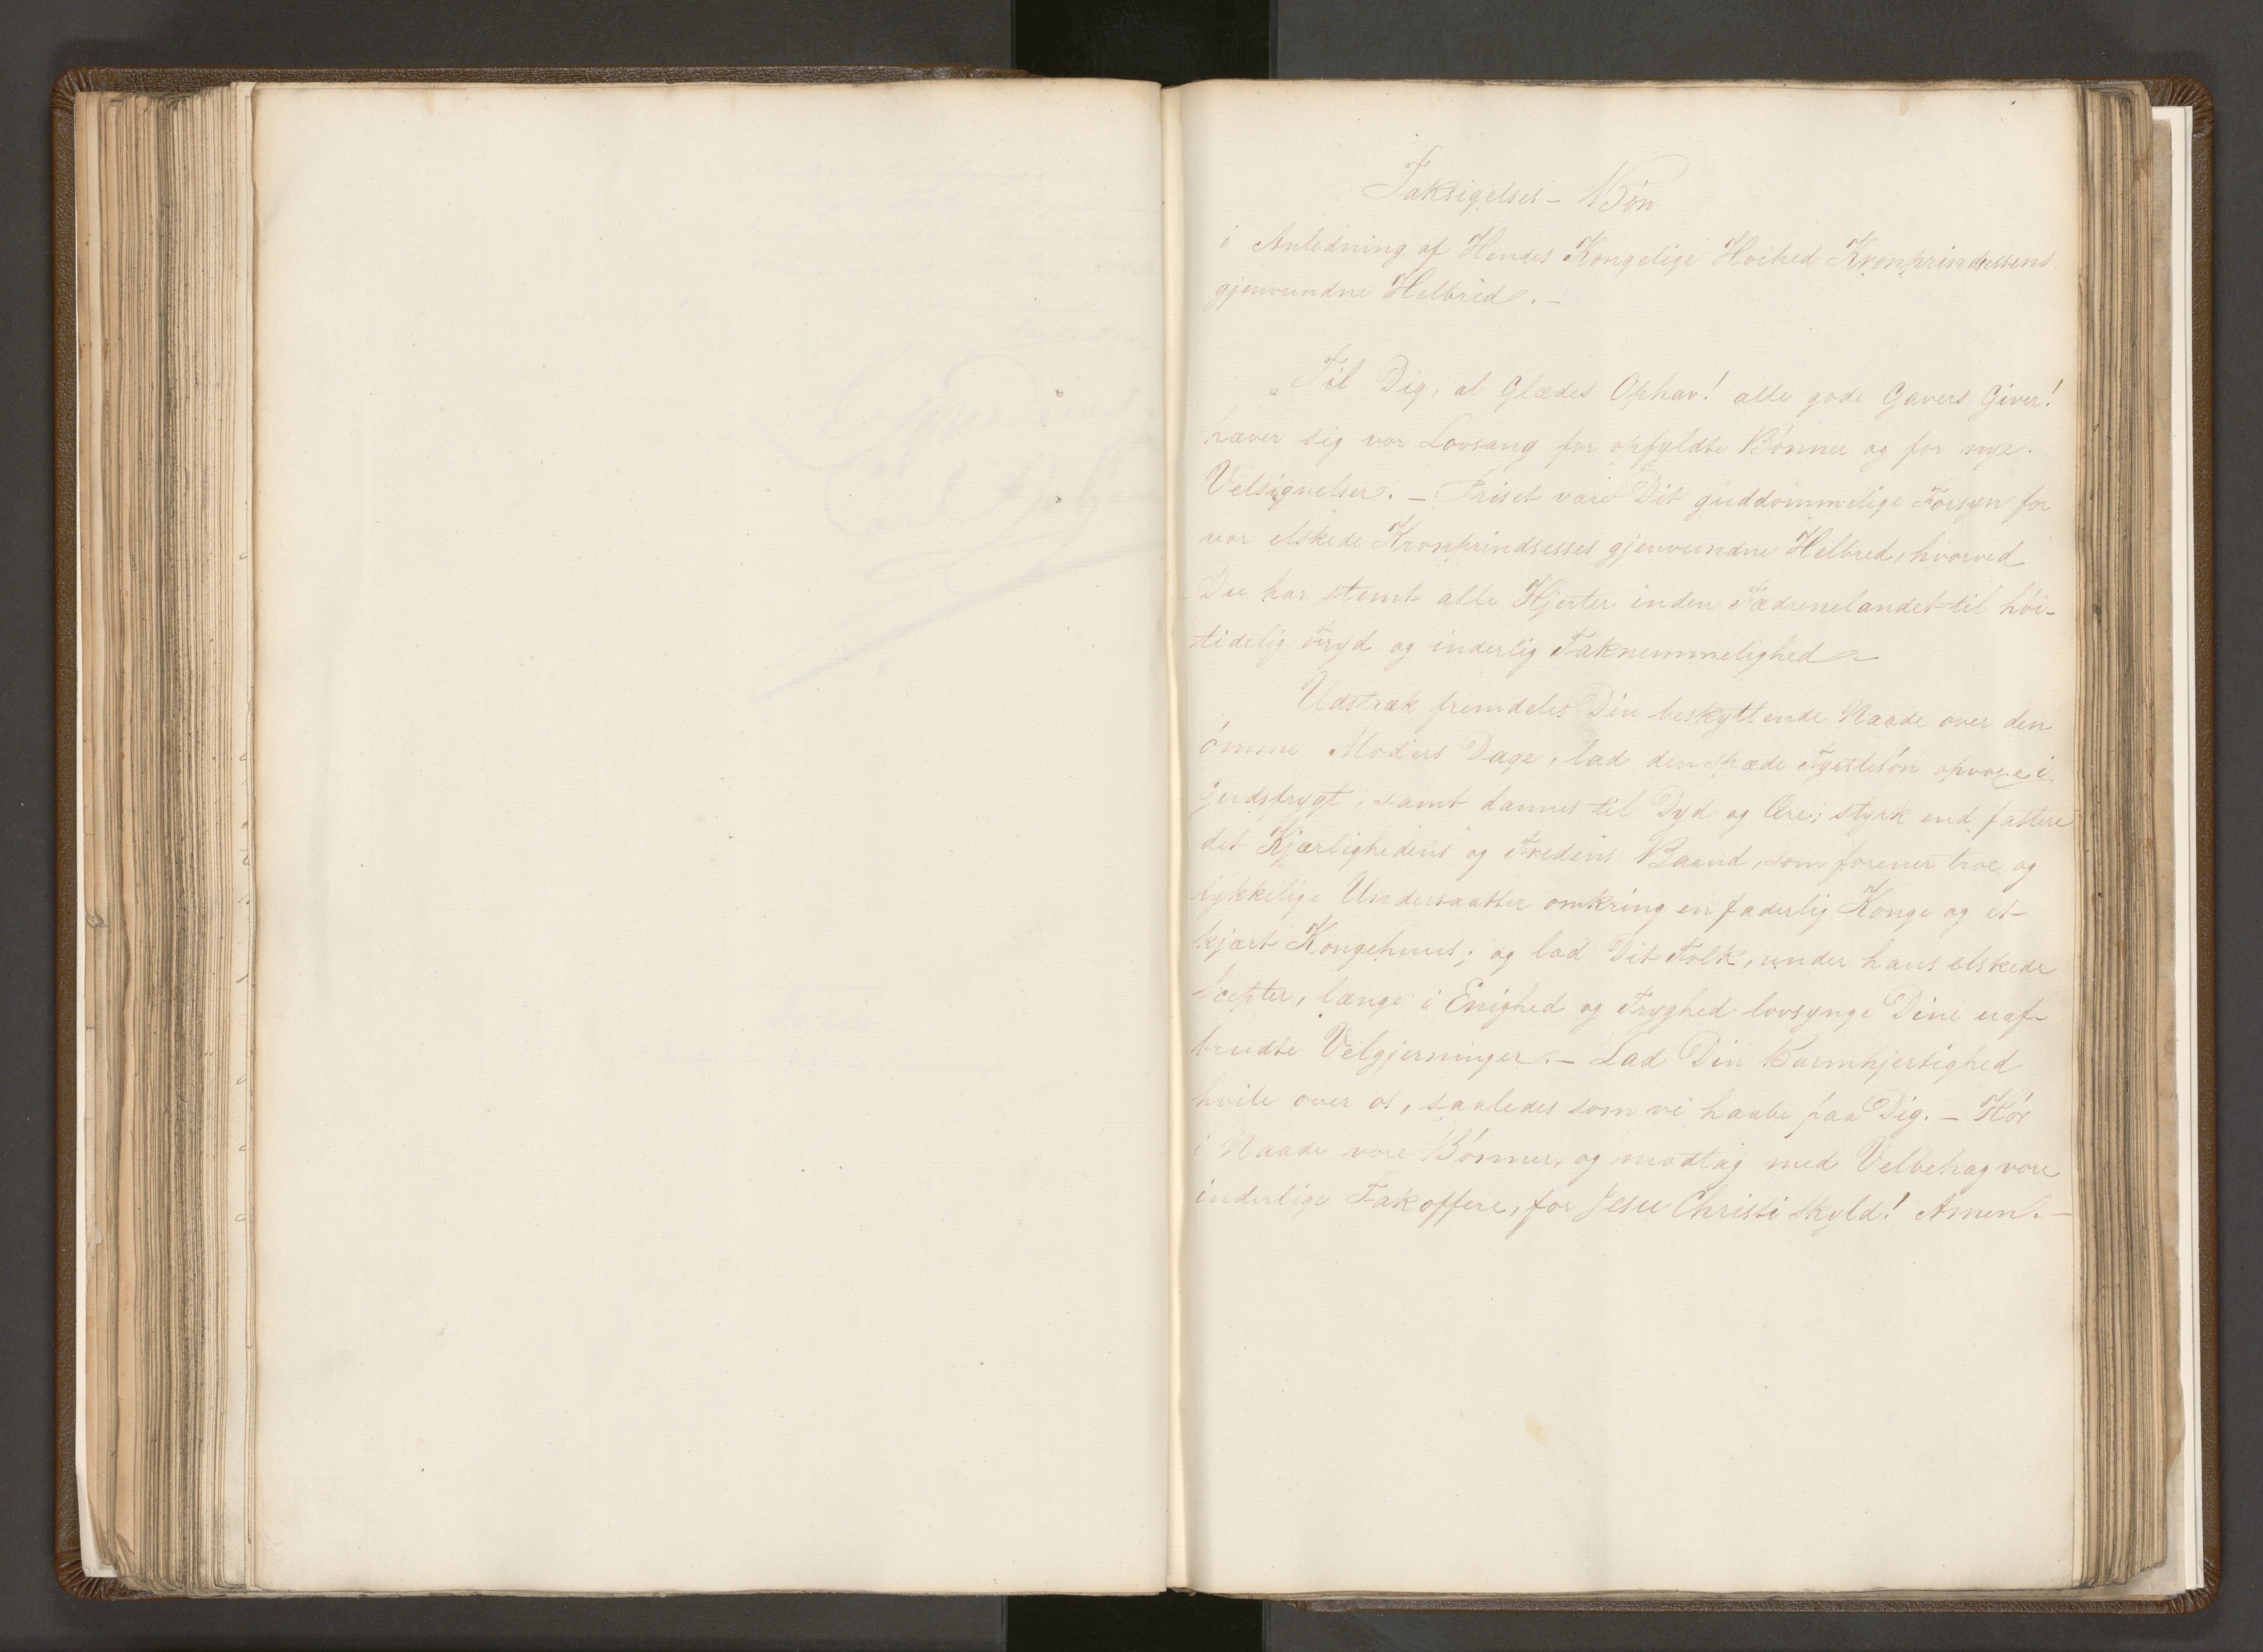 Taksigelses- Bön
i Anledning af Hendes Kongelige Høihed Kronprindsessens
gjenvundne Helbred. -
Til Dig, al Glædes Ophav! alle gode Gavers Giver!
hæver sig vor Lovsang for opfyldte Bönner og for nye
Velsignelser. - Priset være Dit guddommelige Forsyn for
vor elskede Kronprindsesses gjenvundne Helbred, hvorved
Du har stemt alle Hjerter inden Fædrenelandet til höi-
tidelig Fryd og inderlig Taknemmelighed -
Udstræk fremdeles Din beskyttende Naade over den
ömme Moders Dage, lad den spæde Fyrstesön opvoxe i
Gudsfrygt, samt dannes til Dyd og Ære; styrk end fastere
det Kjærlighedens og Fredens Baand, som forener troe og
lykkelige Undersaatter omkring en faderlig Konge og et
kjært Kongehuus; og lad Dit Folk, under hans elskede
Scepter, længe i Enighed og Tryghed lovsynge Dine uaf-
brudte Velgjerninger. - Lad Din Barmhjertighed
hvile over os, saaledes som vi haabe paa Dig. - Hör
i Naade vore Bönner, og modtag med Velbehag vore
inderlige Takoffere, for Jesu Christi Skyld! Amen. -